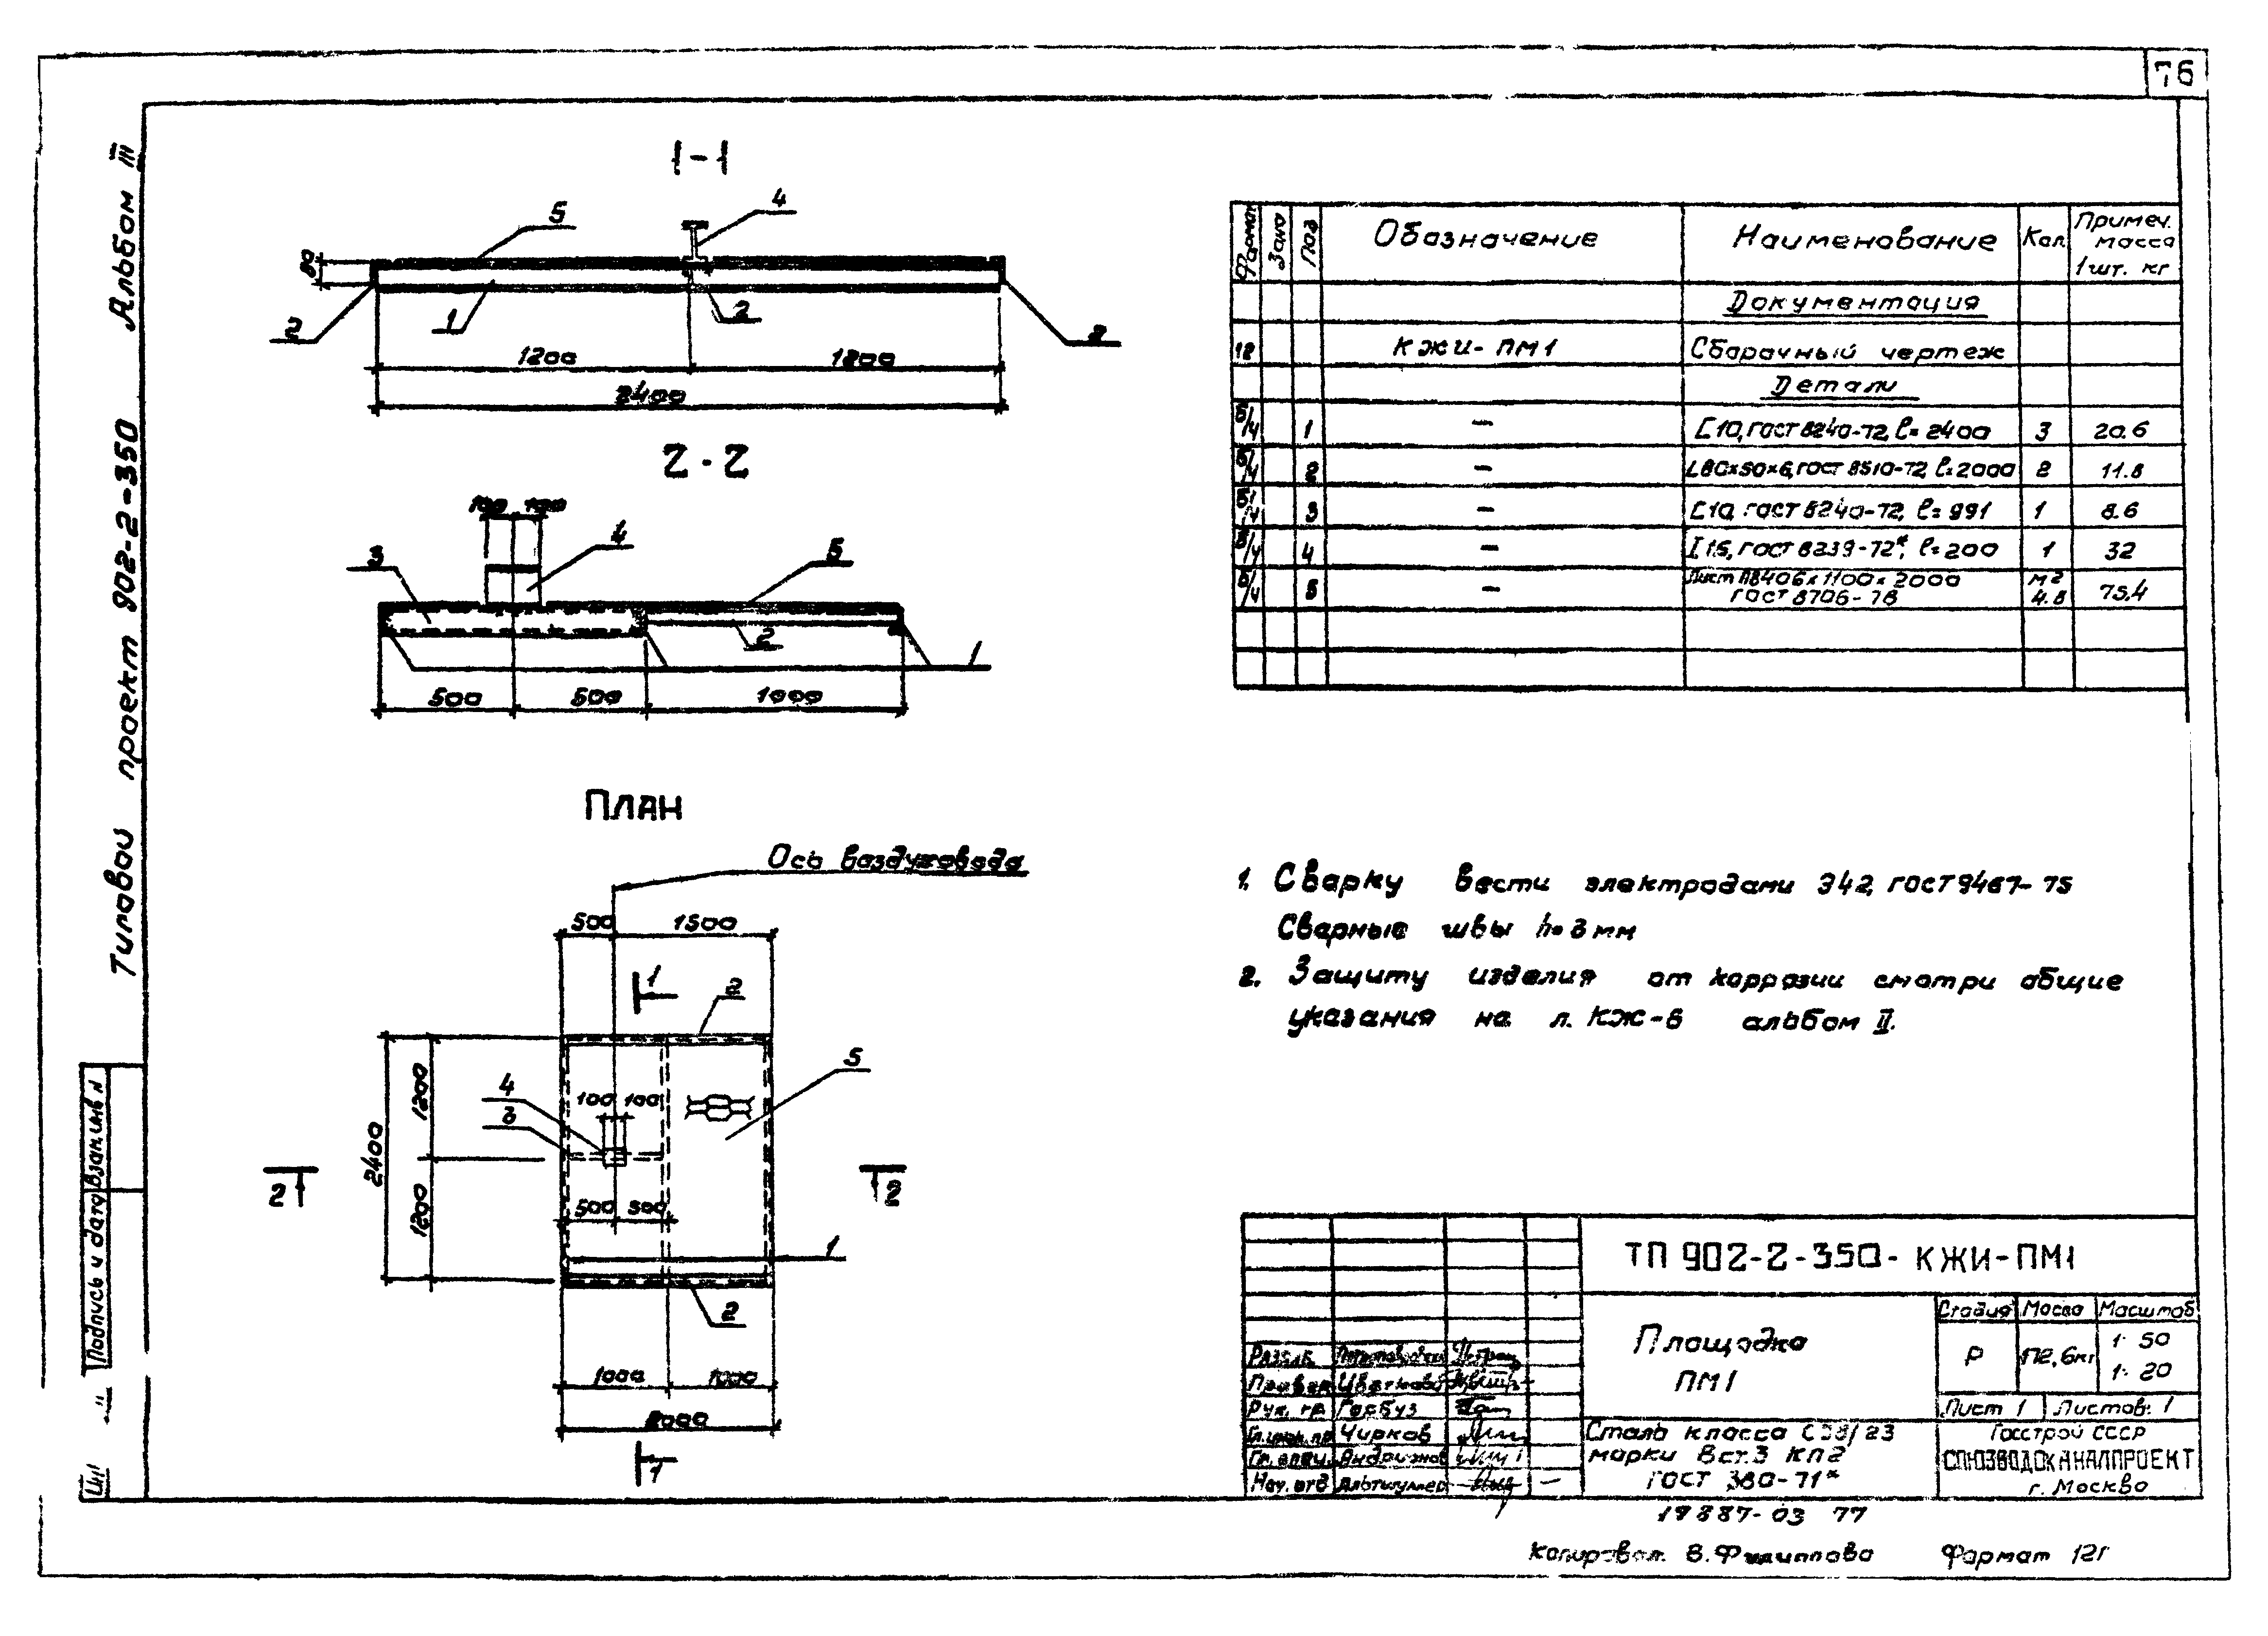 76
Альбом III
Типовой проект 902-2-350
Взам.инв N
Подпись и дата
1-1
5
4
80
2
1
2
2
1200
1200
2400
2-2
100 100
4
3
5
2
1
500
500
1000
ПЛАН
Ось воздуховода
500
1500
1
2
5
4
3
100 100
1200
2400
1200
2
2
500 500
1
2
1000
1000
2000
1
Формат
Зона
Поз
Обозначение
Наименование
Кол.
Примеч. масса 1шт. кг
Документация
12 КЖИ-ПМ1 Сборочный чертеж
Детали
Б/ч 1 — [10, ГОСТ 8240-72, ℓ=2400 3 20.6
Б/ч 2 — L80×50×6, ГОСТ 8510-72 ℓ=2000 2 11.8
Б/ч 3 — [10, ГОСТ 8240-72, ℓ=991 1 8.6
Б/ч 4 — I 16, ГОСТ 8239-72*, ℓ=200 1 32
Б/ч 5 — Лист ПВ406×1100×2000 м2 75.4
ГОСТ 8706-78 4.8
1. Сварку вести электродами Э42, ГОСТ 9467-75
Сварные швы h=3мм
2. Защиту изделия от коррозии смотри общие
указания на л. КЖ-8 альбом II.
ТП 902-2-350-КЖИ-ПМ1
Площадка
ПМ1
Стадия Масса Масштаб
Р 172,6кг 1:50
1:20
Лист 1 Листов: 1
Разраб.
Провер. Цветкова
Рук. гр. Гарбуз
Гл.инж.пр Чирков
Андрианов
Нач. отд Альтшуллер
Сталь класса С38/23
марки Вст.3 КП2
ГОСТ 380-71*
Госстрой СССР
СОЮЗВОДОКАНАЛПРОЕКТ
г. Москва
19887-03 77
Копировал: В.Филиппова Формат 12г